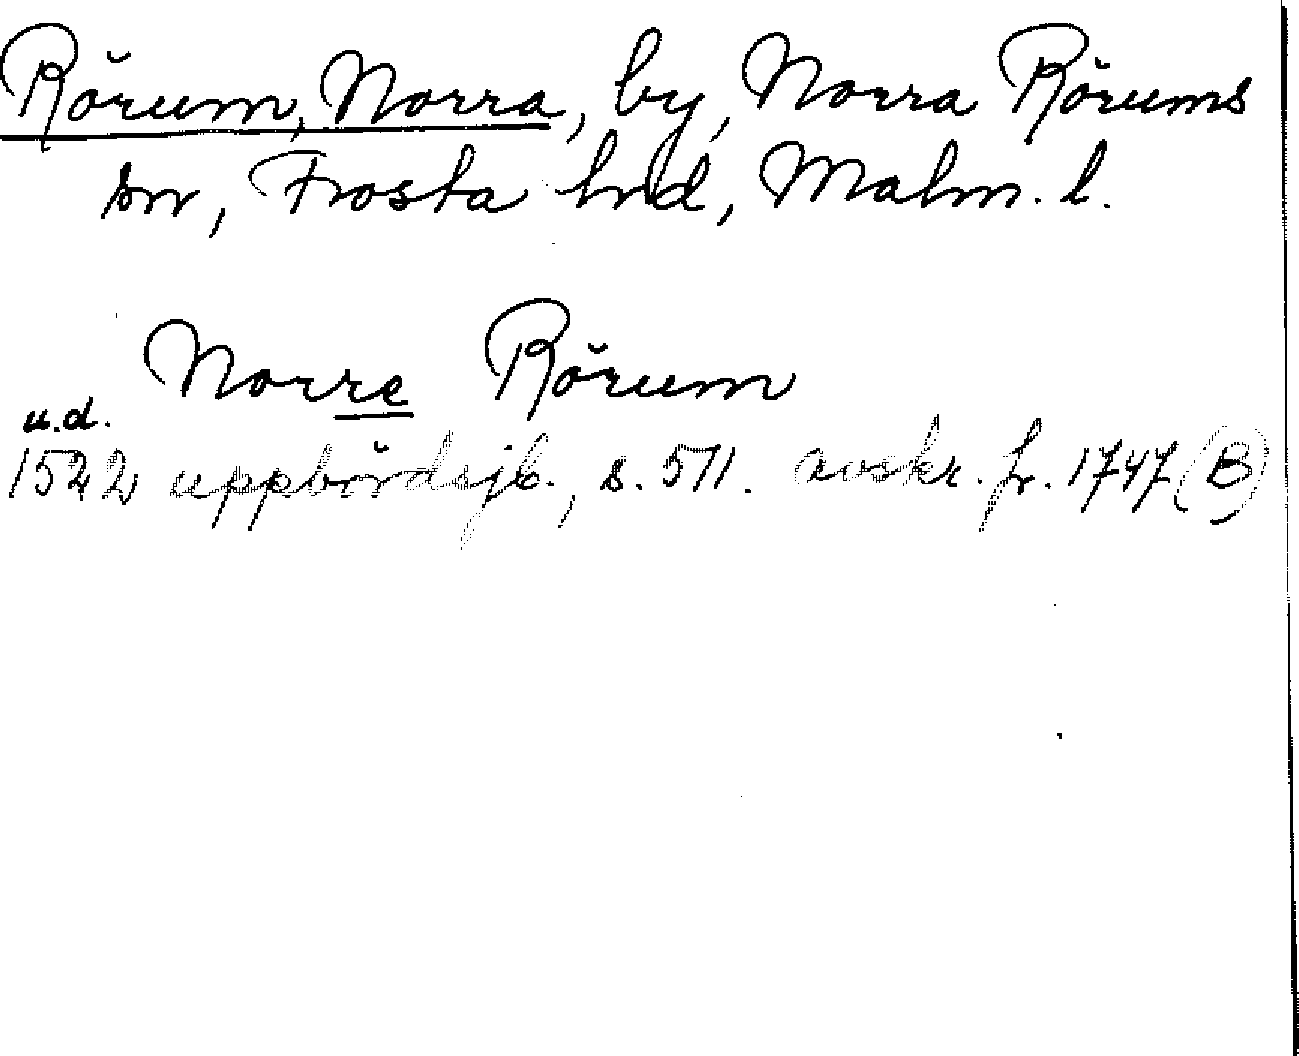 Rörum, Norra, by, Norra Rörums
sn, Frosta hrd, Malm. l.
Norre Rörum
u.d.
1522 uppbördsjb., s. 571. avskr. fr. 1747 (B)